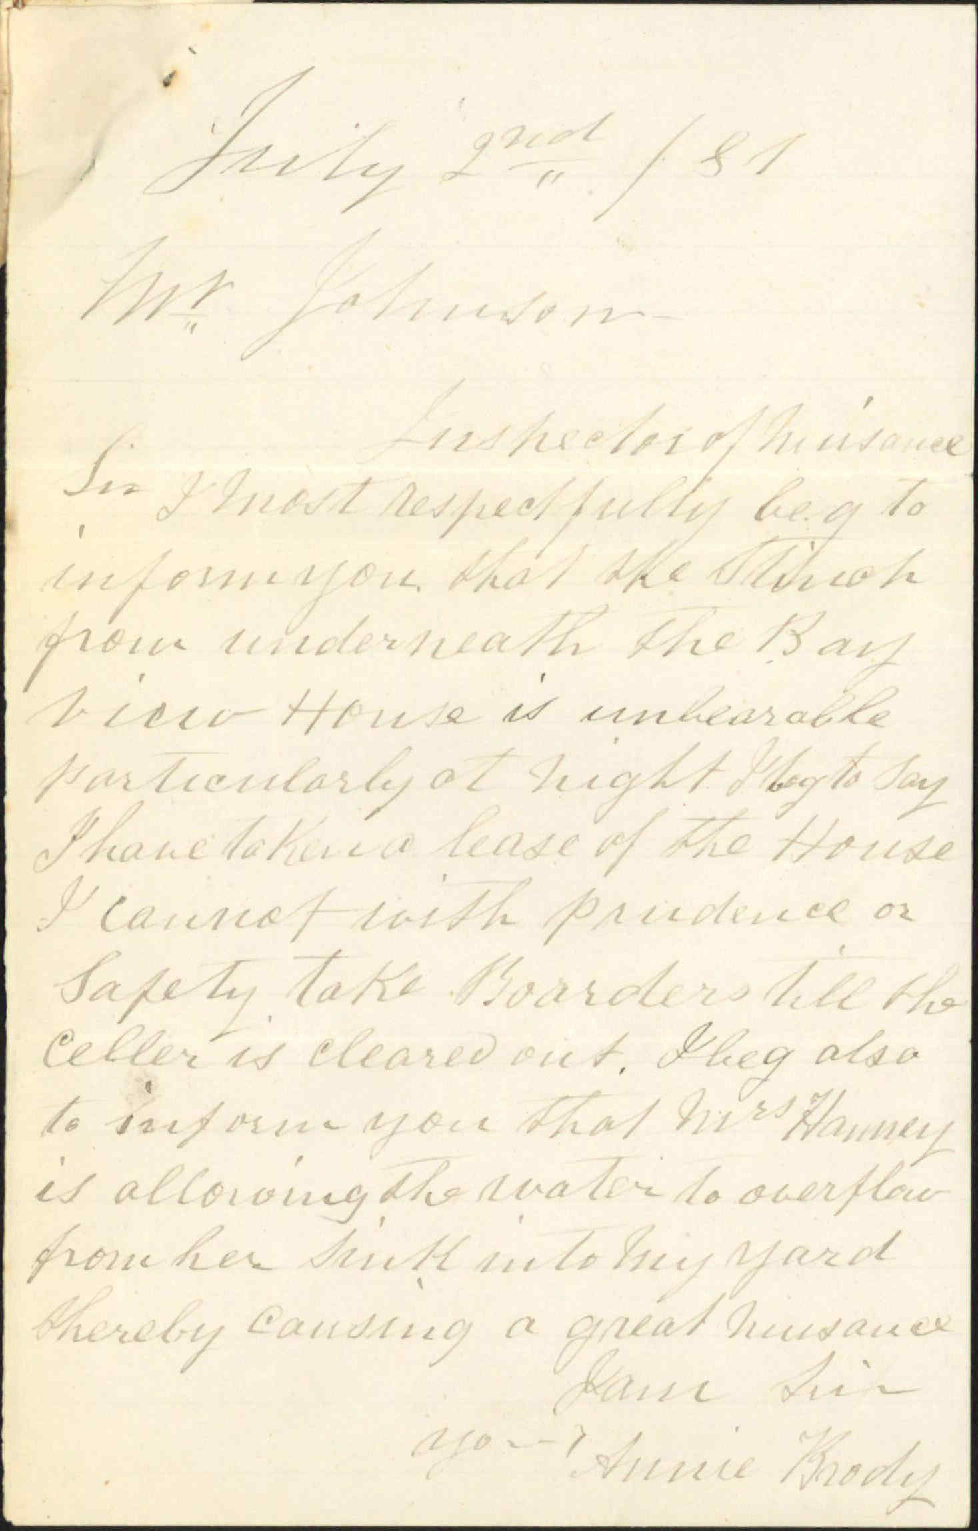 July 2nd /81
Mr. Johnson
Inspector of Nuisance
Sir I most respectfully beg to
inform you that the Stinch
from underneath the Bay
View House is unbearable
particularly at night I beg to say
I have taken a lease of the House
I cannot with prudence or
Safety take Boarders till the
Celler is cleared out. I beg also
to inform you that Mrs Hanney
is allowing the water to overflow
from her Sink into My yard
thereby causing a great nuisance
I am Sir
yours
Annie Brody